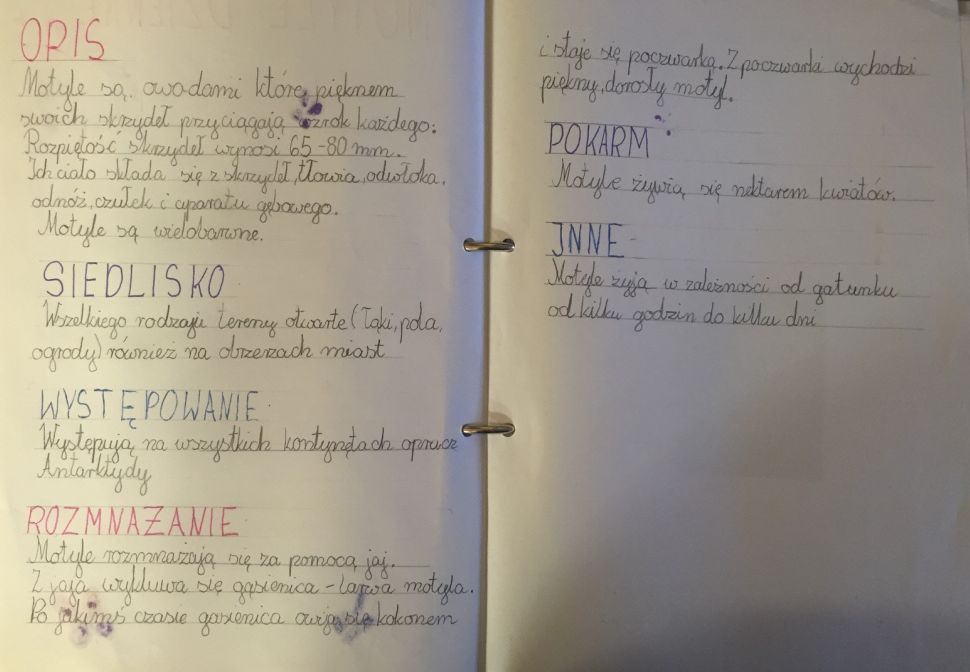 OPIS
Motyle są owadami które pięknem
swoich skrzydeł przyciągają wzrok każdego.
Rozpiętość skrzydeł wynosi 65-80 mm.
Ich ciało składa się z skrzydeł, tłowia, odwłoka,
odnóż, czułek i aparatu gębowego.
Motyle są wielobarwne.
SIEDLISKO
Wszelkiego rodzaju tereny otwarte (łąki, pola,
ogrody) również na obrzeżach miast
WYSTĘPOWANIE
Występują na wszystkich kontynętach oprucz
Antarktydy
ROZMNAŻANIE
Motyle rozmnażają się za pomocą jaj.
Z jaja wykluwa się gąsienica - larwa motyla.
Po jakimś czasie gąsienica owija się kokonem
i staje się poczwarką. Z poczwarki wychodzi
piękny, dorosły motyl.
POKARM
Motyle żywią się nektarem kwiatów.
INNE
Motyle żyją w zależności od gatunku
od kilku godzin do kilku dni